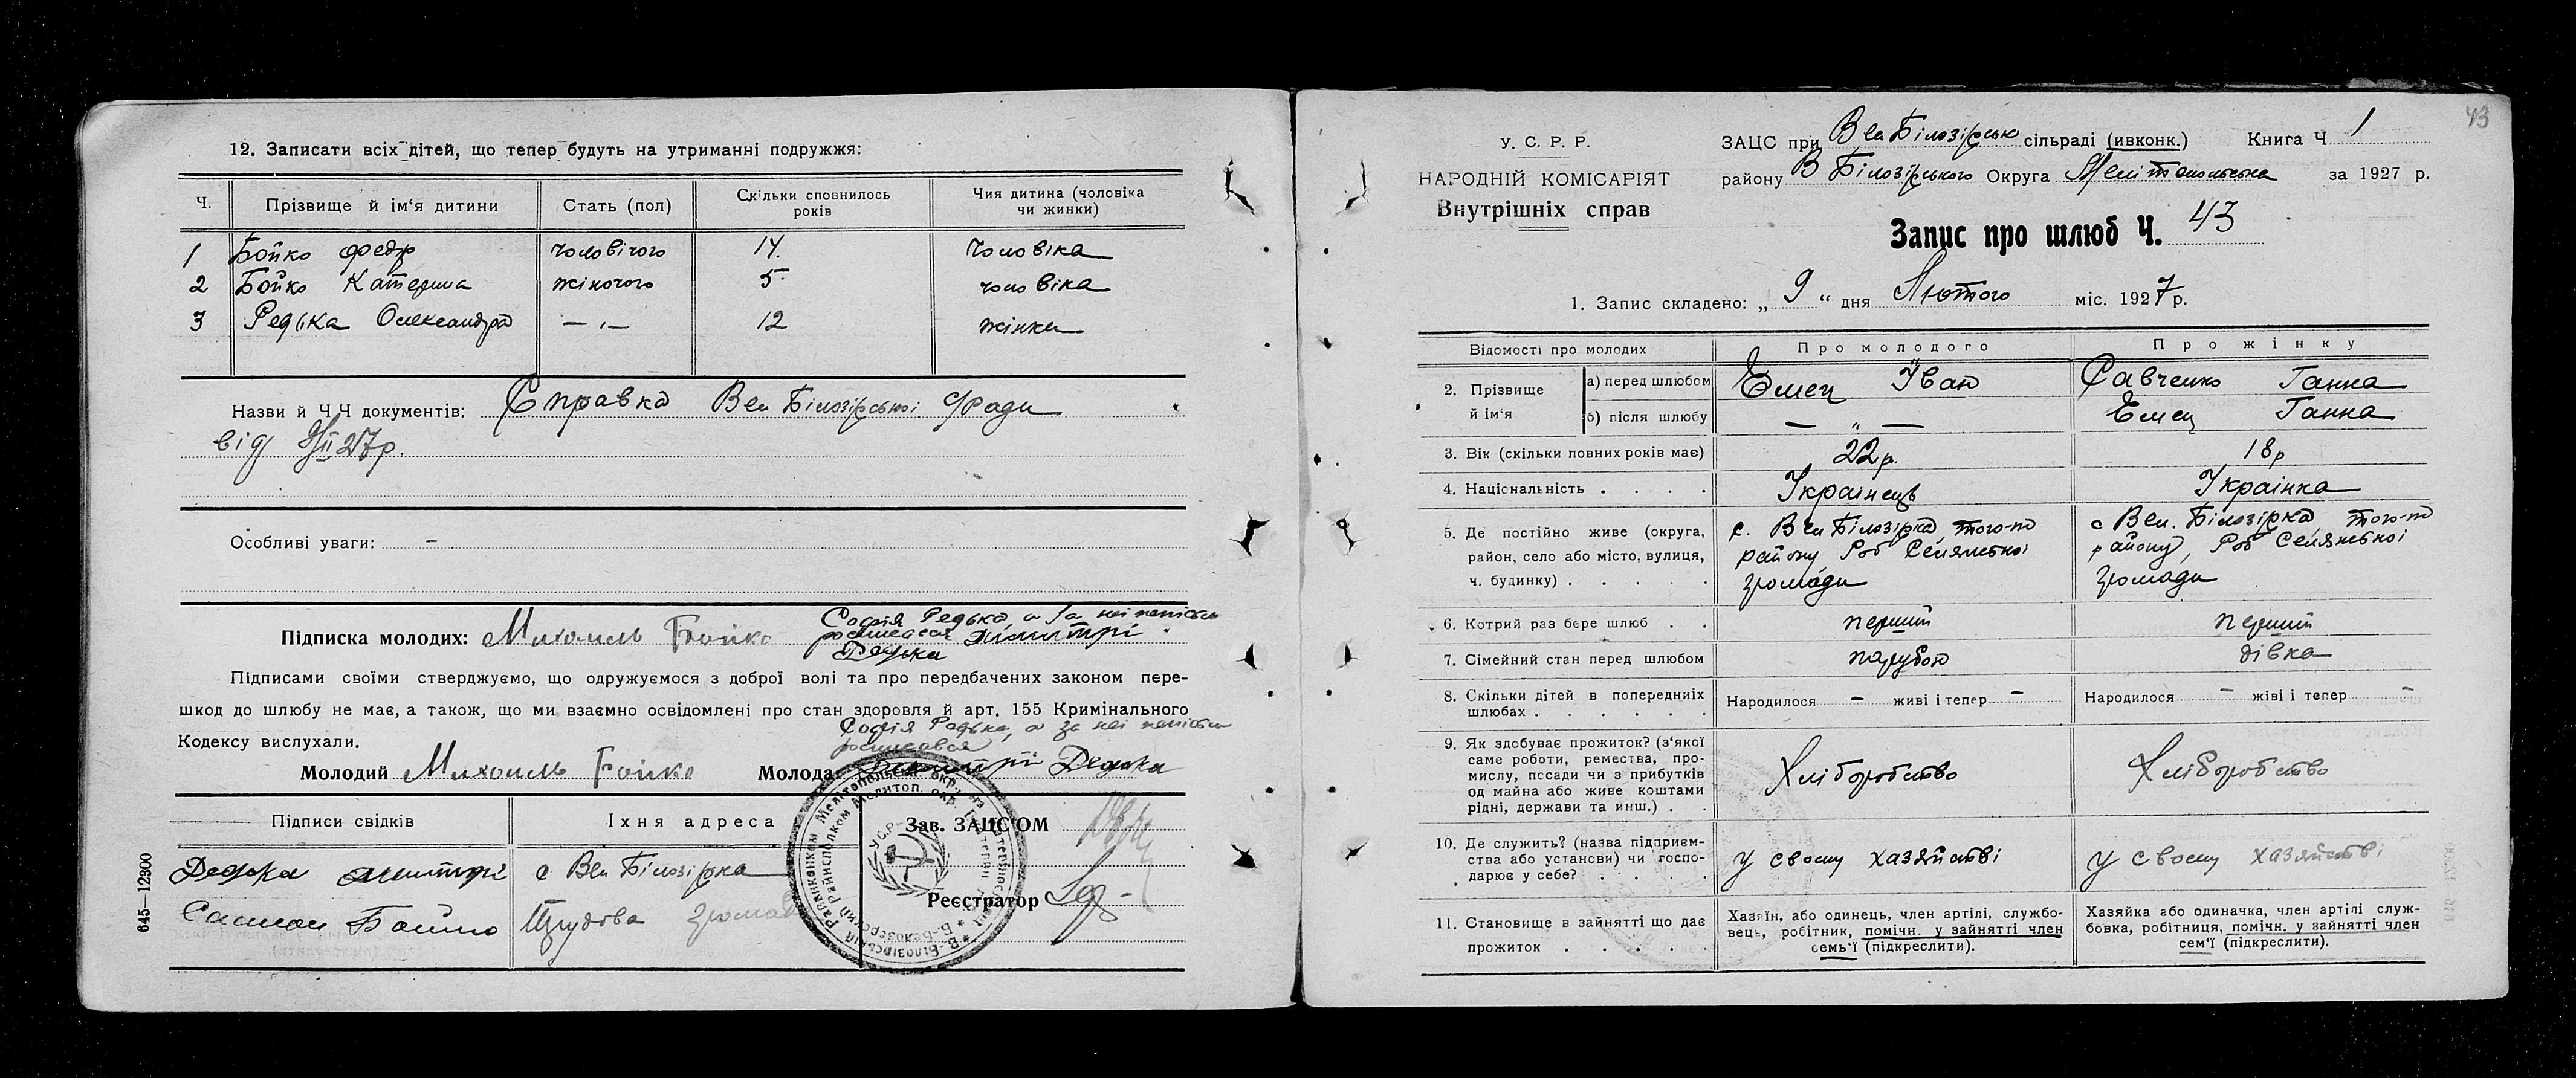 12. Записати всіх дітей, що тепер будуть на утриманні подружжя:
Ч. Прізвище й ім'я дитини Стать (пол) Скільки сповнилось років Чия дитина (чоловіка чи жинки)
1 Бойко Федір чоловічого 14. Чоловіка
2 Бойко Катерина жіночого 5 чоловіка
3 Редька Олександра — „ — 12 жінки
Назви й Ч Ч документів: Справка Вел Білозірської с/ради
від 9/II 27р.
Особливі уваги: –
Підписка молодих: Михаиль Бойко Софія Редька, а за неї
Редька
Підписами своїми стверджуємо, що одружуємося з доброї волі та про передбачених законом пере-
шкод до шлюбу не має, а також, що ми взаємно освідомлені про стан здоровля й арт. 155 Кримінального
Кодексу вислухали.
Софія Редька, а за неї
росписався
Молодий Михаиль Бойко Молода Редька
Підписи свідків Їхня адреса Зав. ЗАЦС'ОМ
Редька с Вел Білозірка
Бойко Трудова громада Реєстратор
645—12900
43
У. С. Р. Р.
НАРОДНІЙ КОМІСАРІЯТ
Внутрішніх справ
ЗАЦС при Вел Білозірськ сільраді (ивконк.) Книга Ч 1
району В Білозірського Округа Мелітопольська за 1927 р.
Запис про шлюб Ч. 43
1. Запис складено: „ 9 “ дня Лютого міс. 1927 р.
Відомості про молодих Про молодого Про жінку
2. Прізвище й ім'я а) перед шлюбом Емец Іван Савченко Ганна
б) після шлюбу — „ — Емец Ганна
3. Вік (скільки повних років має) 22р. 18р
4. Національність Українець Українка
5. Де постійно живе (округа, с. Вел Білозірка, того-то с Вел. Білозірка, того-то
район, село або місто, вулиця, району Роб Селянської району, Роб Селянської
ч. будинку) громади громади
6. Котрий раз бере шлюб перший перший
7. Сімейний стан перед шлюбом парубок дівка
8. Скільки дітей в попередниіх шлюбах Народилося – живі і тепер – Народилося – жіві і тепер –
9. Як здобуває прожиток? (з'якої
саме роботи, ремества, про-
мислу, посади чи з прибутків Хліборобство Хліборобство
од майна або живе коштами
рідні, держави та инш.)
10. Де служить? (назва підприєм-
ства або установи) чи госпо- у своему хазяйстві у своему хазяйстві
дарює у себе?
11. Становище в зайнятті що дає Хазяїн, або одинець, член артілі, службо- Хазяйка або одиначка, член артілі служ-
прожиток вець, робітник, помічн. у зайнятті член бовка, робітниця, помічн. у зайнятті член
семь'ї (підкреслити). сем'ї (підкреслити).